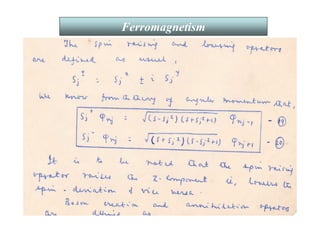 Ferromagnetism
The spin raising and lowering oprators
are defined as usual,
Sj± = Sjx ± i Sjy
We know from theory of angular momentum that,
Sj+ φnj = √(S-Sjz)(S+Sjz+1) φnj-1 - (19)
Sj- φnj = √(S+Sjz)(S-Sjz+1) φnj+1 - (20)
It is to be noted that the spin raising
oprator raises the Z-component ie, lowers the
spin-deviation & vice versa.
Boson creation and annihilation oprators
are define as